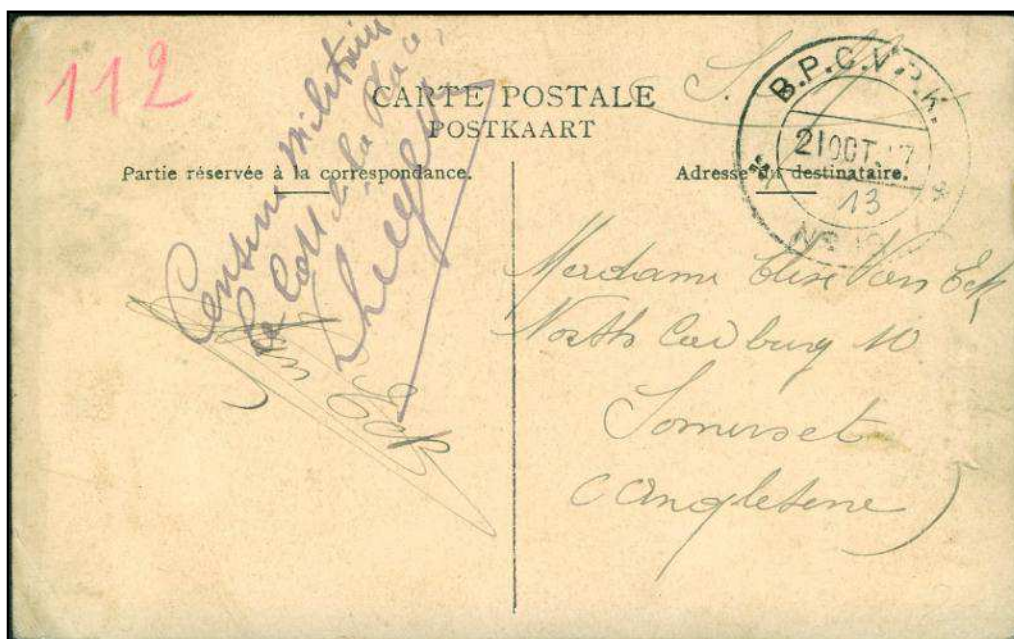 112
CARTE POSTALE
POSTKAART
Partie réservée à la correspondance.
Adresse du destinataire.
B.P.C.V.P.K.
21 OCT. 17
13
Censure Militaire
Van Eck
Madame Elise Van Eck
North Cadbury
Somerset
(Angleterre)